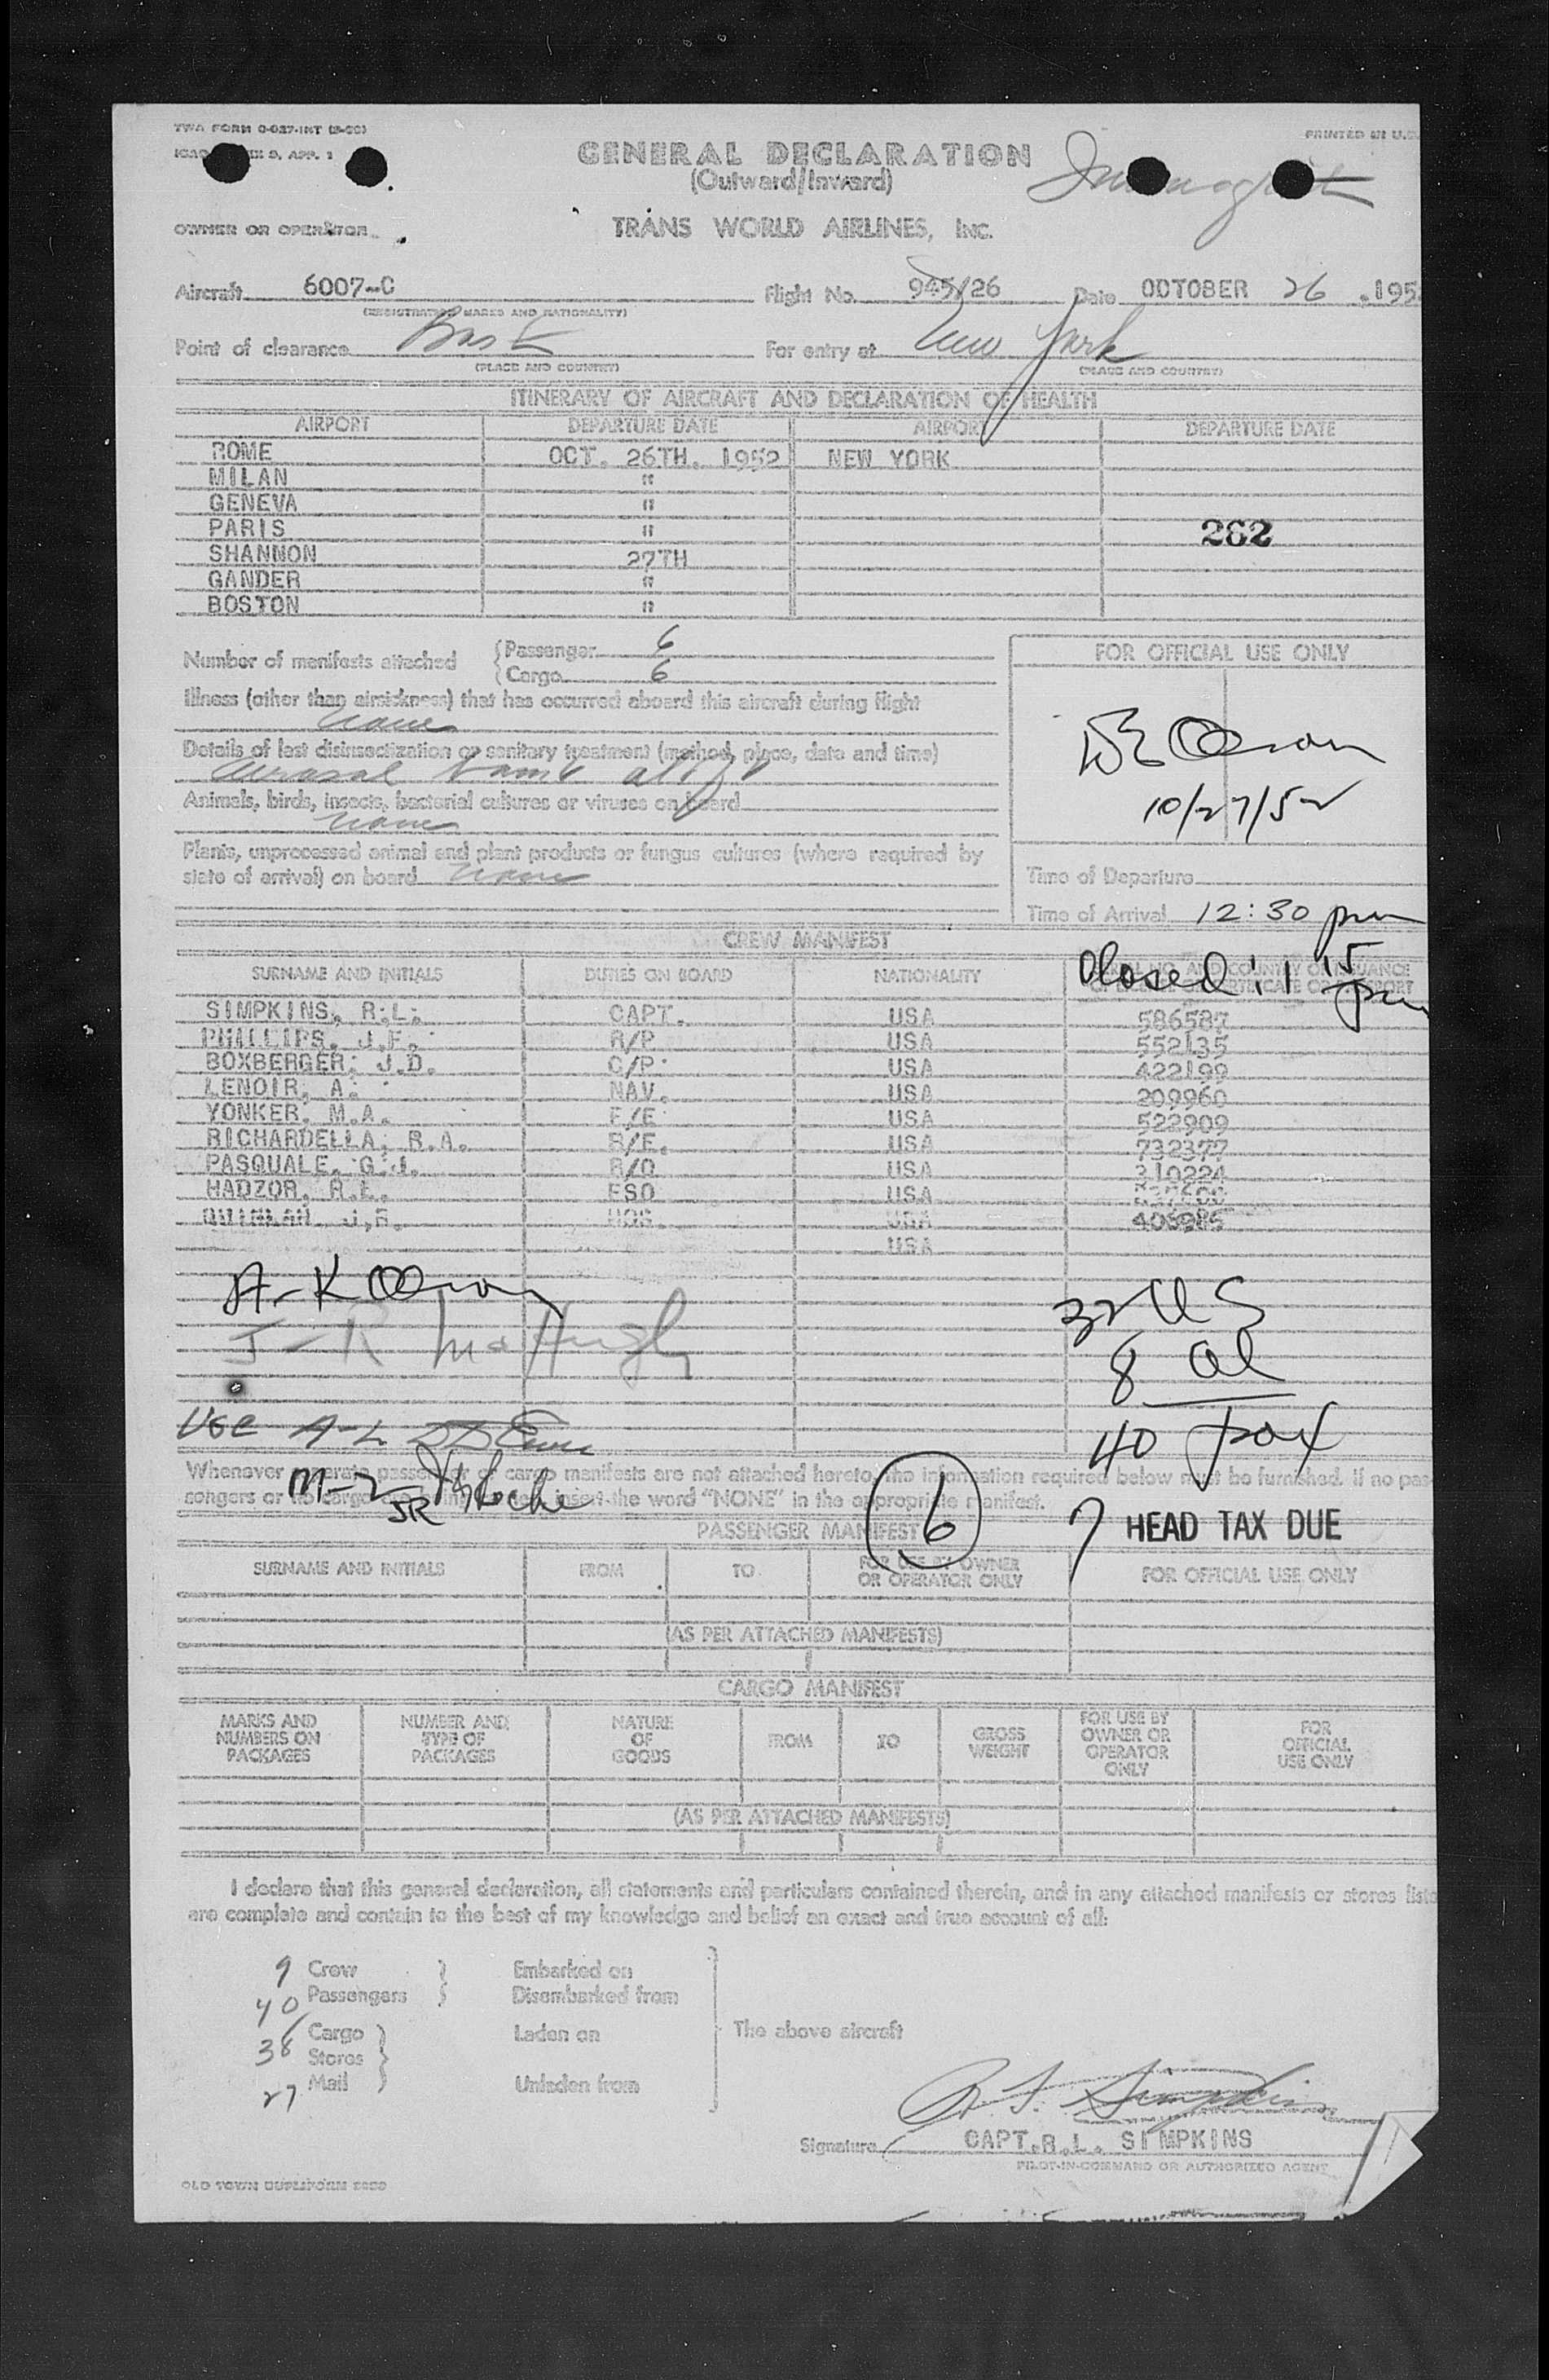 TWA FORM 0-027-INT
PRINTED IN U.S.
APP. 1
GENERAL DECLARATION
(Outward/Inward)
OWNER OR OPERATOR
TRANS WORLD AIRLINES, INC.
Aircraft 6007-C Flight No. 945/26 Date OCTOBER 26 , 195
(REGISTRATION MARKS AND NATIONALITY)
Point of clearance For entry at New York
(PLACE AND COUNTRY) (PLACE AND COUNTRY)
ITINERARY OF AIRCRAFT AND DECLARATION OF HEALTH
AIRPORT DEPARTURE DATE AIRPORT DEPARTURE DATE
ROME OCT. 26TH. 1952 NEW YORK
MILAN "
GENEVA "
PARIS " 262
SHANNON 27TH
GANDER "
BOSTON "
Number of manifests attached { Passenger 6
Cargo 6
FOR OFFICIAL USE ONLY
Illness (other than airsickness) that has occurred aboard this aircraft during flight
None
Details of last disinsectization or sanitary treatment (method, place, date and time)
Aerosal bomb
Animals, birds, insects, bacterial cultures or viruses on board
None
Plants, unprocessed animal and plant products or fungus cultures (where required by
state of arrival) on board None
Olson
10/27/52
Time of Departure
Time of Arrival 12:30 pm
Closed 1 15 pm
CREW MANIFEST
SURNAME AND INITIALS DUTIES ON BOARD NATIONALITY
SIMPKINS, R.L. CAPT. USA 586587
PHILLIPS, J.F. R/P USA 552135
BOXBERGER, J.D. C/P USA 422199
LENOIR, A. NAV. USA 209960
YONKER, M.A. F/E USA 522909
RICHARDELLA, R.A. R/E. USA 732377
PASQUALE, G.J. R/O USA 310224
HADZOR, R.L. FSO USA
J.R. HOS. USA 406985
USA
A-K Olson
32 US
J-R McHugh
8 al
40 pax
USC A-L
M-Z
JR
Whenever separate passenger or cargo manifests are not attached hereto, the information required below must be furnished. If no pas-
sengers or no cargo are being insert the word "NONE" in the appropriate manifest.
6
7 HEAD TAX DUE
PASSENGER MANIFEST
SURNAME AND INITIALS FROM TO FOR USE BY OWNER OR OPERATOR ONLY FOR OFFICIAL USE ONLY
(AS PER ATTACHED MANIFESTS)
CARGO MANIFEST
MARKS AND NUMBERS ON PACKAGES NUMBER AND TYPE OF PACKAGES NATURE OF GOODS FROM TO GROSS WEIGHT FOR USE BY OWNER OR OPERATOR ONLY FOR OFFICIAL USE ONLY
(AS PER ATTACHED MANIFESTS)
I declare that this general declaration, all statements and particulars contained therein, and in any attached manifests or stores lists
are complete and contain to the best of my knowledge and belief an exact and true account of all:
9 Crew } Embarked on
40 Passengers } Disembarked from
38 Cargo } Laden on The above aircraft
Stores
27 Mail } Unladen from
R L Simpkins
Signature CAPT.R.L. SIMPKINS
PILOT-IN-COMMAND OR AUTHORIZED AGENT
OLD TOWN DUPLIFORM